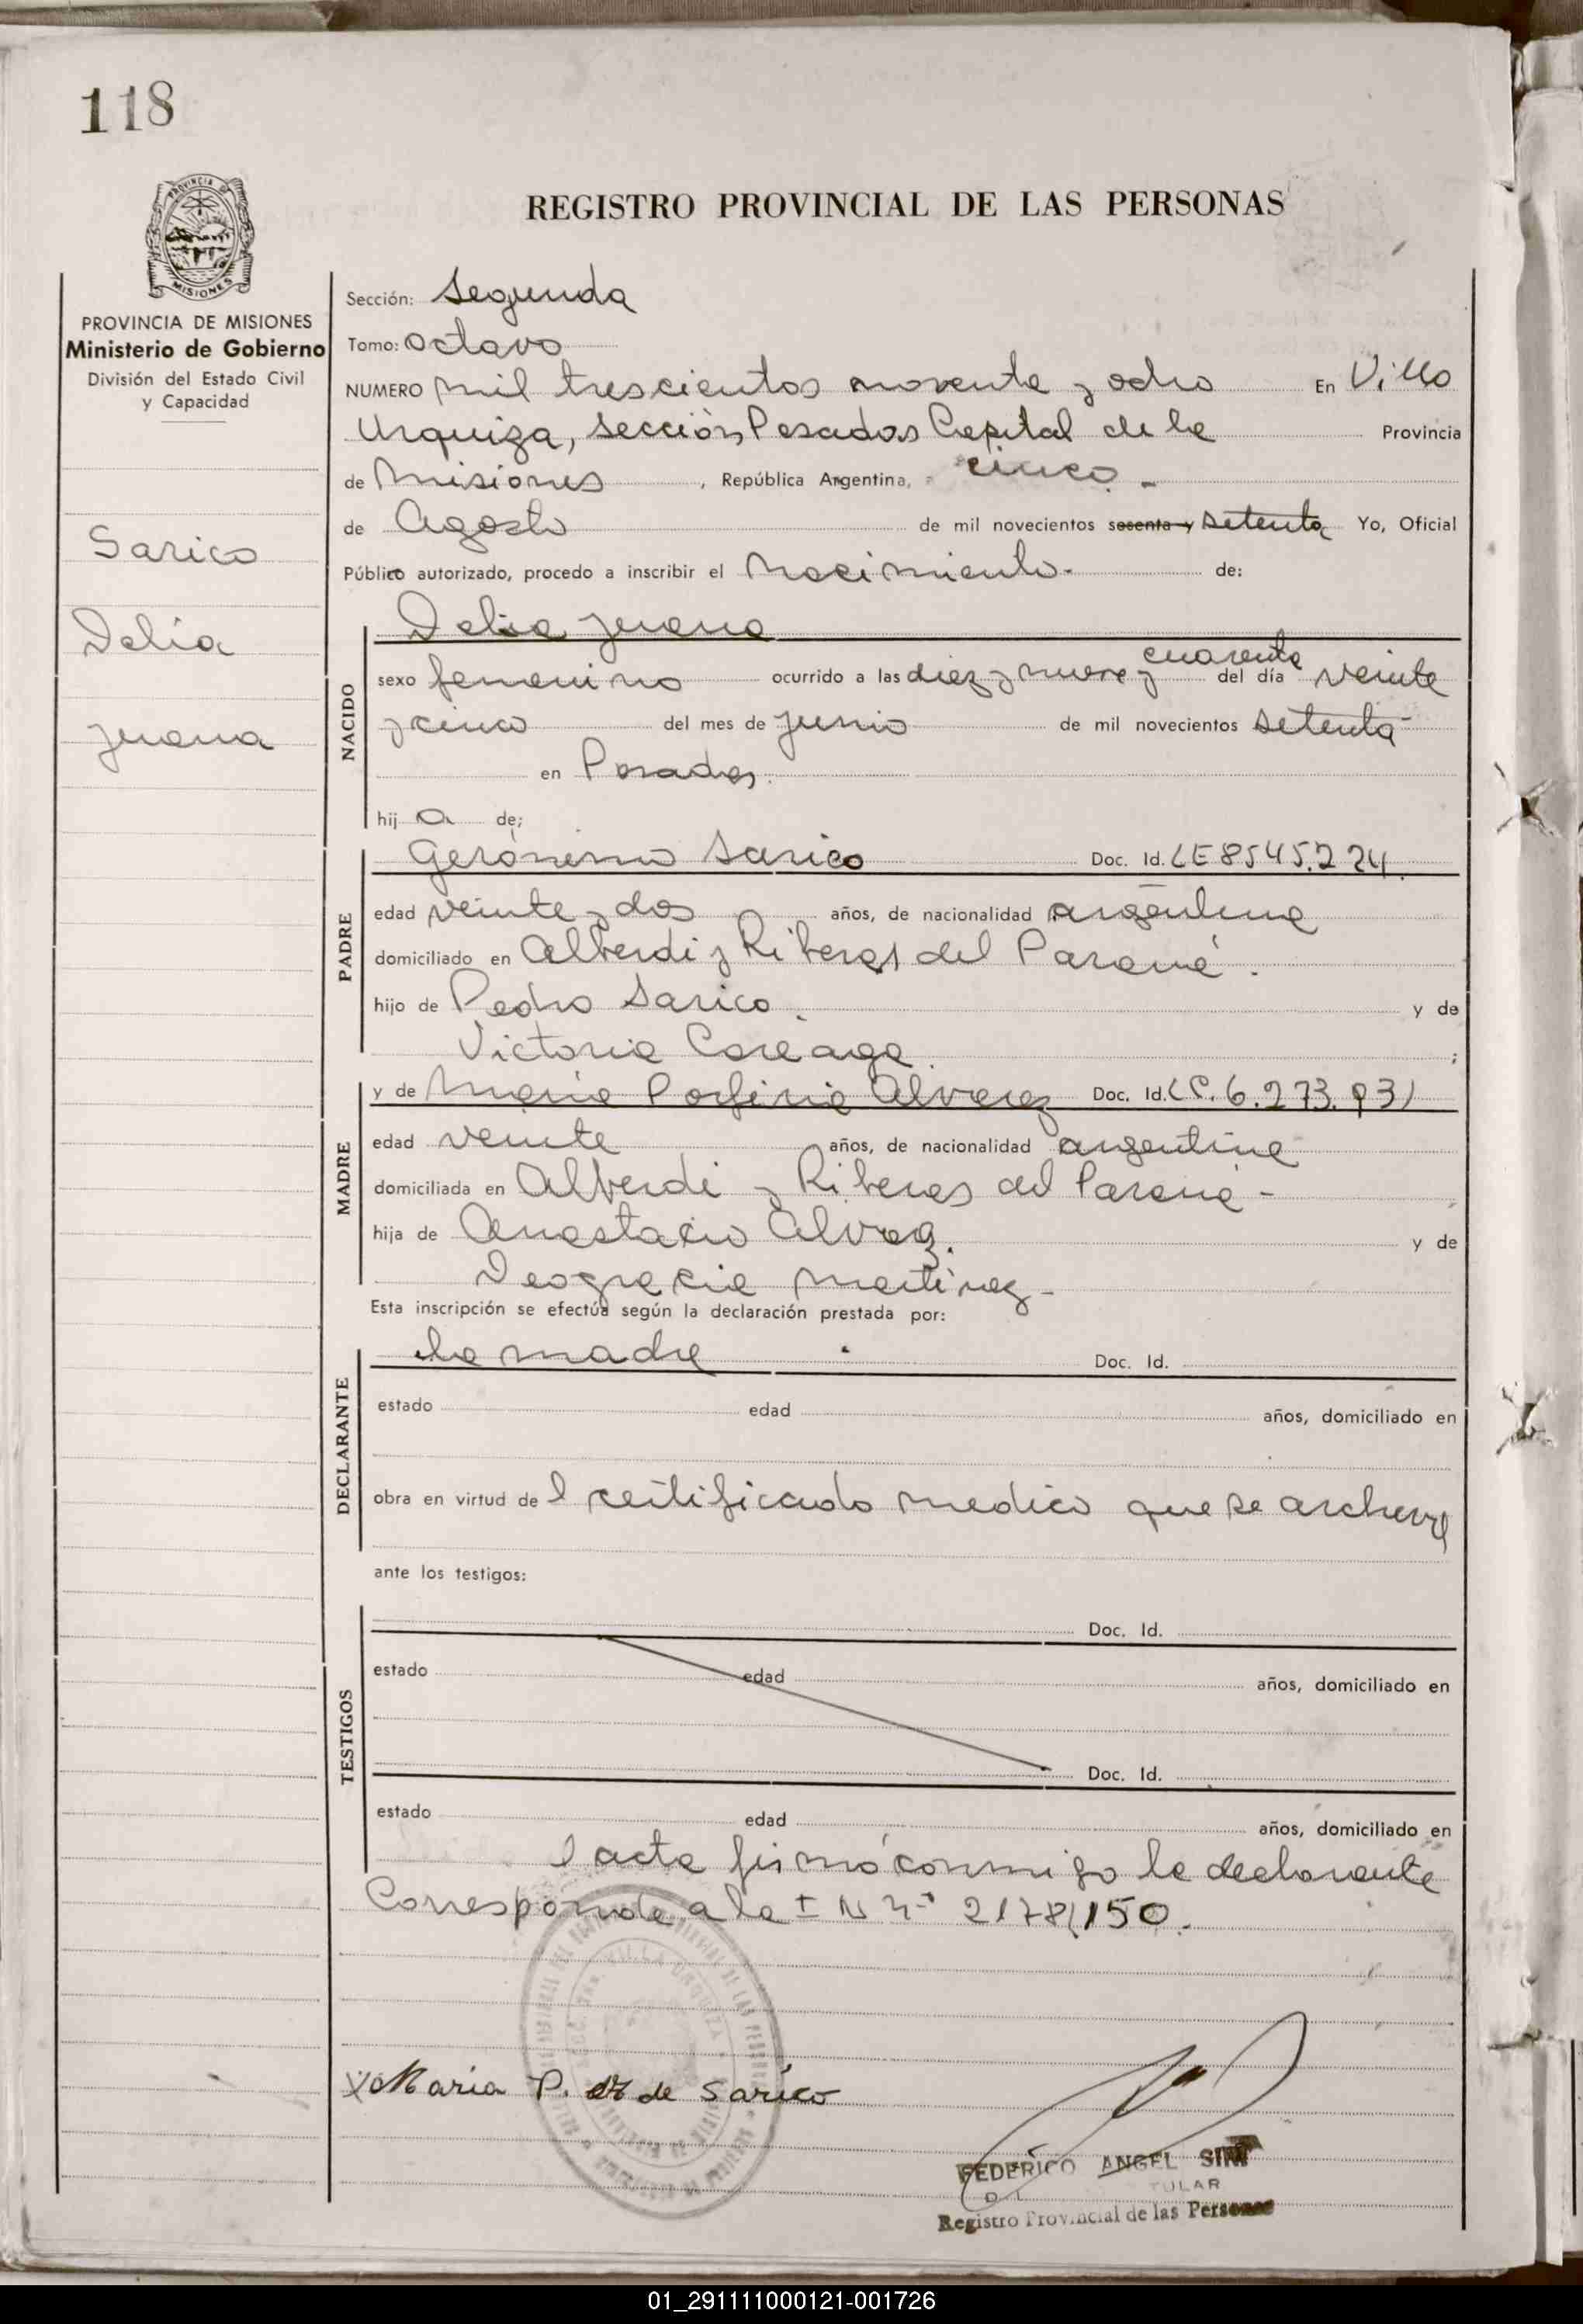 118
REGISTRO PROVINCIAL DE LAS PERSONAS
PROVINCIA DE MISIONES
Ministerio de Gobierno
División del Estado Civil
y Capacidad
Sarico
Delia
Juana
Sección: Segunda
Tomo: Octavo
NUMERO mil trescientos noventa y ocho En Villa
Urquiza, sección Posadas Capital de la Provincia
de Misiones, República Argentina, cinco -
de Agosto de mil novecientos sesenta y setenta Yo, Oficial
Público autorizado, procedo a inscribir el Nacimiento.- de:
NACIDO
Delia Juana
cuarenta
sexo femenino ocurrido a las diez y nueve y del día veinte
y cinco del mes de junio de mil novecientos setenta-
en Posadas.
hij a de;
PADRE
Gerónimo Sarico Doc. Id. LE 8545.224.
edad veinte y dos años, de nacionalidad argentina
domiciliado en Alberdi y Riberas del Paraná.
hijo de Pedro Sarico. y de
Victoria Careaga. ;
MADRE
y de María Porfiria Alvarez Doc. Id. LC. 6.273.931
edad veinte años, de nacionalidad argentina
domiciliada en Alberdi y Riberas del Paraná -
hija de Anastacio Alvez. y de
Deogracia Martinez -
Esta inscripción se efectúa según la declaración prestada por:
DECLARANTE
la madre Doc. Id.
estado edad años, domiciliado en
obra en virtud de l certificado medico que se archiva
ante los testigos:
TESTIGOS
Doc. Id.
estado edad años, domiciliado en
Doc. Id.
estado edad años, domiciliado en
l acta firmó conmigo la declarante
Corresponde a la I N nº 2178/150.
VILLA URQUIZA
X Maria P. de Sarico
FEDERICO ANGEL
TULAR
Registro Provincial de las Personas
01_291111000121-001726